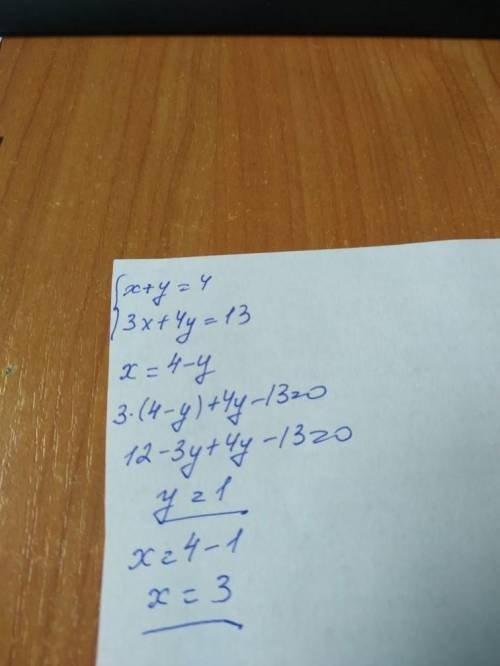 {x+y=4
3x+4y=13
x=4-y
3·(4-y)+4y-13=0
12-3y+4y-13=0
y=1
x=4-1
x=3